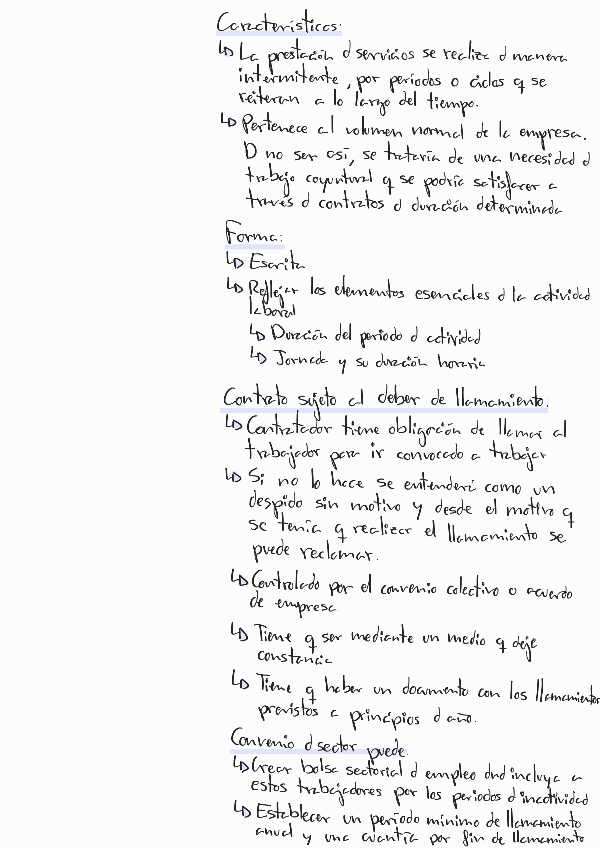 Características:
↳ La prestación d servicios se realiza d manera
intermitente, por períodos o ciclos q se
reiteran a lo largo del tiempo.
↳ Pertenece al volumen normal de la empresa.
D no ser así, se trataría de una necesidad d
trabajo coyuntural q se podría satisfacer a
través d contratos d duración determinada
Forma:
↳ Escrita
↳ Reflejar los elementos esenciales d la actividad
laboral
↳ Duración del período d actividad
↳ Jornada y su duración horaria
Contrato sujeto al deber de llamamiento:
↳ Contratador tiene obligación de llamar al
trabajador para ir convocado a trabajar
↳ Si no lo hace se entenderá como un
despido sin motivo y desde el motivo q
se tenía q realizar el llamamiento se
puede reclamar.
↳ Controlado por el convenio colectivo o acuerdo
de empresa
↳ Tiene q ser mediante un medio q deje
constancia
↳ Tiene q haber un documento con los llamamientos
previstos a principios d año.
Convenio d sector puede:
↳ Crear bolsa sectorial d empleo dnd incluya a
estos trabajadores por los periodos d inactividad
↳ Establecer un período mínimo de llamamiento
anual y una cuantía por fin de llamamiento